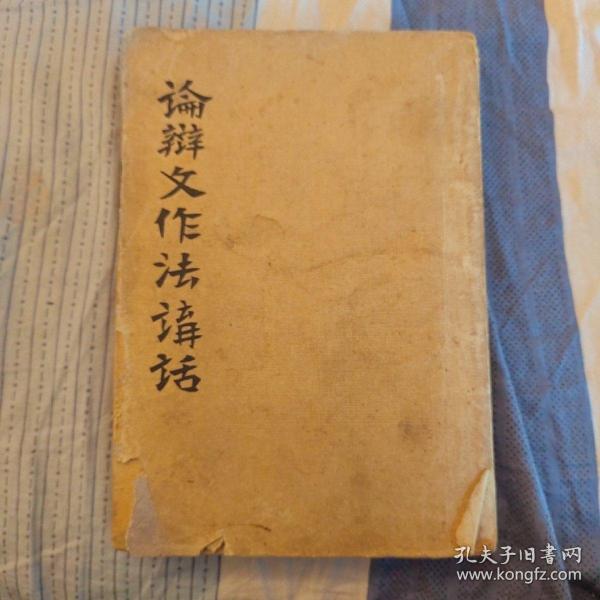 論辯文作法講話
孔夫子旧書网
www.kongfz.com